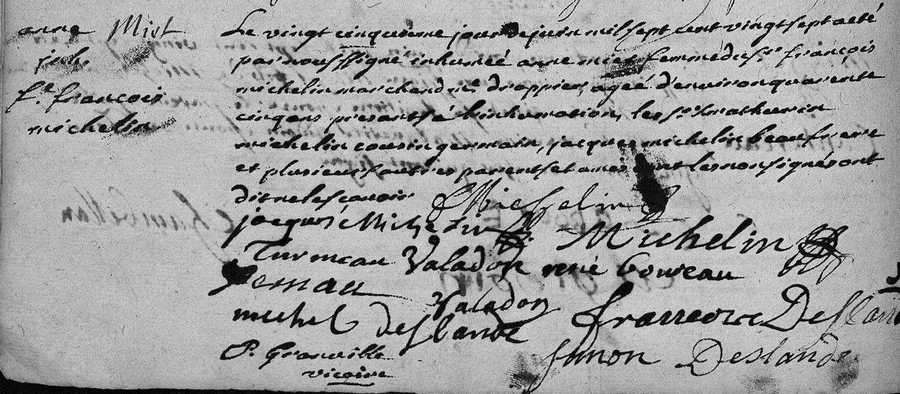 anne Miet
f.e françois
michelin
Le vingt cinquieme jour de juin mil sept cent vingt sept a eté
par nous sousigné inhumeé anne miet femme du Sr. françois
michelin marchand md. drappier, ageé d'environ quarente
cinq ans presants a l'inhumation, les Srs mathurin
michelin cousin germain, jacques michelin beaufrere
et plusieurs autres parents et amis dont les non signes ont
dit ne le scavoir
f Michelin
jacque Michelin
Michelin
Turmeau Valadon rené boureau
Valadon
michel deslande
francois Deslande
P. Granville
vicaire
simon Deslande